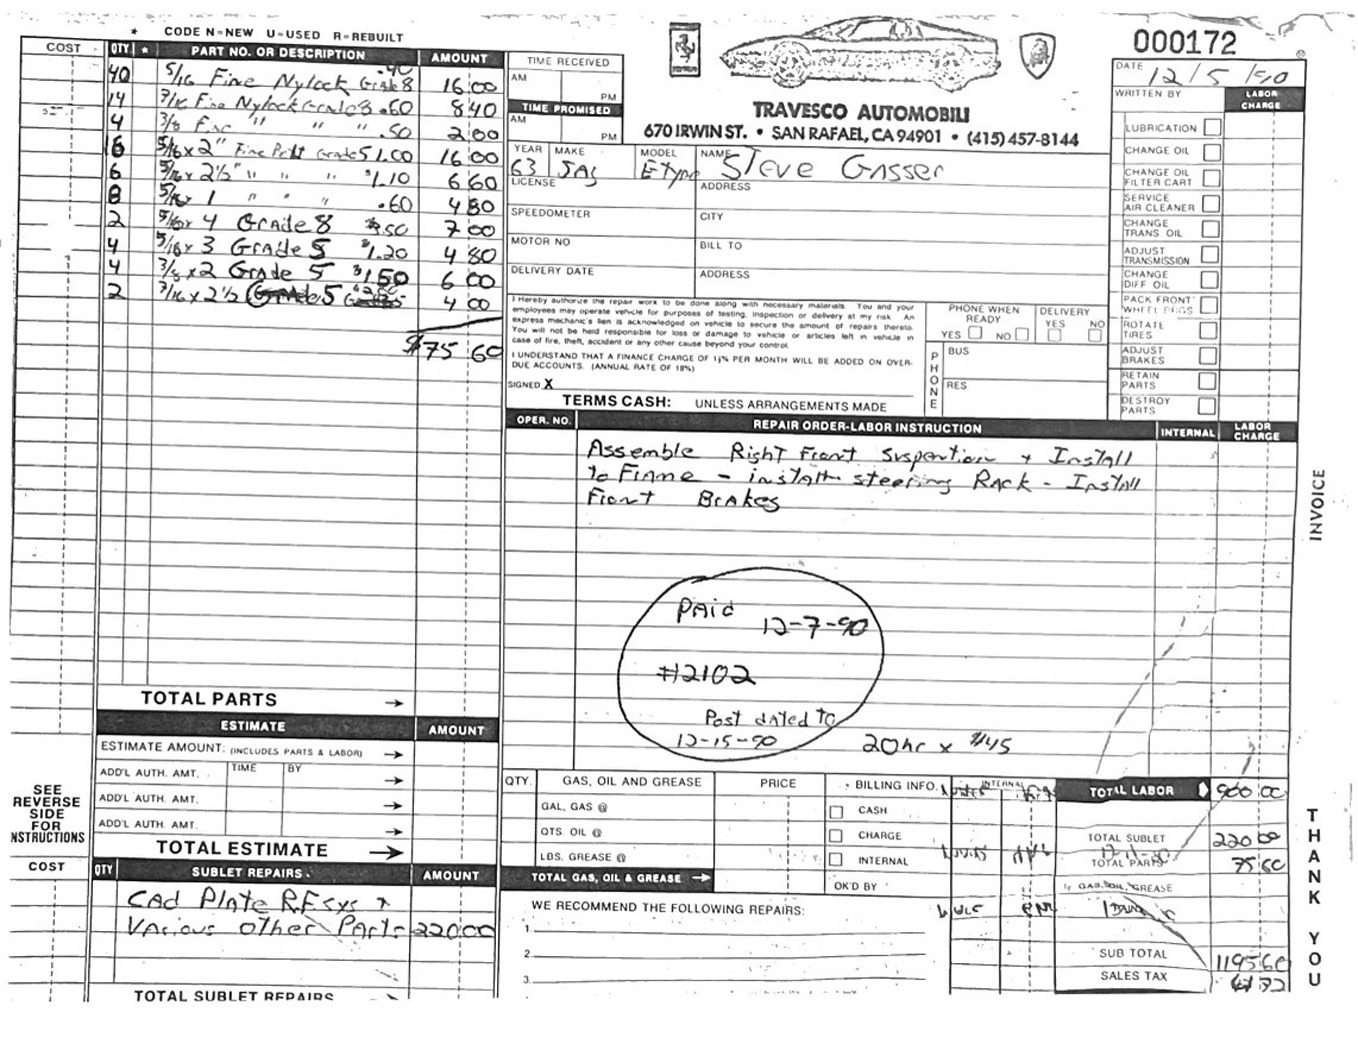 * CODE N=NEW U=USED R=REBUILT
COST QTY * PART NO. OR DESCRIPTION AMOUNT
40 5/16 Fine Nylock Grade 8 .40 16 00
14 7/16 Fine Nylock Grade 8 .60 8 40
4 3/8 Fine " " " .50 2 00
16 5/16 x 2" Fine Bolt Grade 5 1.00 16 00
6 5/16 x 2½" " " " $1.10 6 60
8 5/16 x 1 " " " .60 4 80
2 5/16 x 4 Grade 8 $3.50 7 00
4 5/16 x 3 Grade 5 $1.20 4 80
4 3/8 x 2 Grade 5 $1.50 6 00
2 7/16 x 2½ 4 00
$75 60
TOTAL PARTS →
ESTIMATE AMOUNT
ESTIMATE AMOUNT: (INCLUDES PARTS & LABOR) →
ADD'L AUTH. AMT. TIME BY →
ADD'L AUTH. AMT. →
ADD'L AUTH. AMT. →
TOTAL ESTIMATE →
SEE
REVERSE
SIDE
FOR
INSTRUCTIONS
COST QTY SUBLET REPAIRS AMOUNT
Cad Plate RF sys +
Various Other Parts 220 00
TOTAL SUBLET REPAIRS
TIME RECEIVED
AM PM
TIME PROMISED
AM PM
TRAVESCO AUTOMOBILI
670 IRWIN ST. • SAN RAFAEL, CA 94901 • (415) 457-8144
000172
YEAR MAKE MODEL NAME
63 Jag E type Steve Gasser
LICENSE ADDRESS
SPEEDOMETER CITY
MOTOR NO BILL TO
DELIVERY DATE ADDRESS
I Hereby authorize the repair work to be done along with necessary materials. You and your
employees may operate vehicle for purposes of testing, inspection or delivery at my risk. An
express mechanic's lien is acknowledged on vehicle to secure the amount of repairs thereto.
You will not be held responsible for loss or damage to vehicle or articles left in vehicle in
case of fire, theft, accident or any other cause beyond your control.
I UNDERSTAND THAT A FINANCE CHARGE OF 1½% PER MONTH WILL BE ADDED ON OVER-
DUE ACCOUNTS. (ANNUAL RATE OF 18%)
SIGNED X
TERMS CASH: UNLESS ARRANGEMENTS MADE
PHONE WHEN READY YES NO
DELIVERY YES NO
PHONE
BUS
RES
DATE 12/5/90
WRITTEN BY LABOR CHARGE
LUBRICATION
CHANGE OIL
CHANGE OIL
FILTER CART
SERVICE
AIR CLEANER
CHANGE
TRANS OIL
ADJUST
TRANSMISSION
CHANGE
DIFF OIL
PACK FRONT
WHEEL BRGS
ROTATE
TIRES
ADJUST
BRAKES
RETAIN
PARTS
DESTROY
PARTS
OPER. NO. REPAIR ORDER-LABOR INSTRUCTION INTERNAL LABOR CHARGE
Assemble Right Front Suspention + Install
to Frame - install steering Rack - Install
Front Brakes
Paid 12-7-90
#2102
Post dated to
12-15-90
20hr x $45
QTY. GAS, OIL AND GREASE PRICE
GAL, GAS @
QTS. OIL @
LBS. GREASE @
TOTAL GAS, OIL & GREASE →
BILLING INFO.
CASH
CHARGE
INTERNAL
OK'D BY
INTERNAL
WE RECOMMEND THE FOLLOWING REPAIRS:
1.
2.
3.
TOTAL LABOR 900 00
TOTAL SUBLET 220 00
TOTAL PARTS 75 60
GAS, OIL, GREASE
SUB TOTAL 1195 60
SALES TAX
INVOICE
THANK YOU